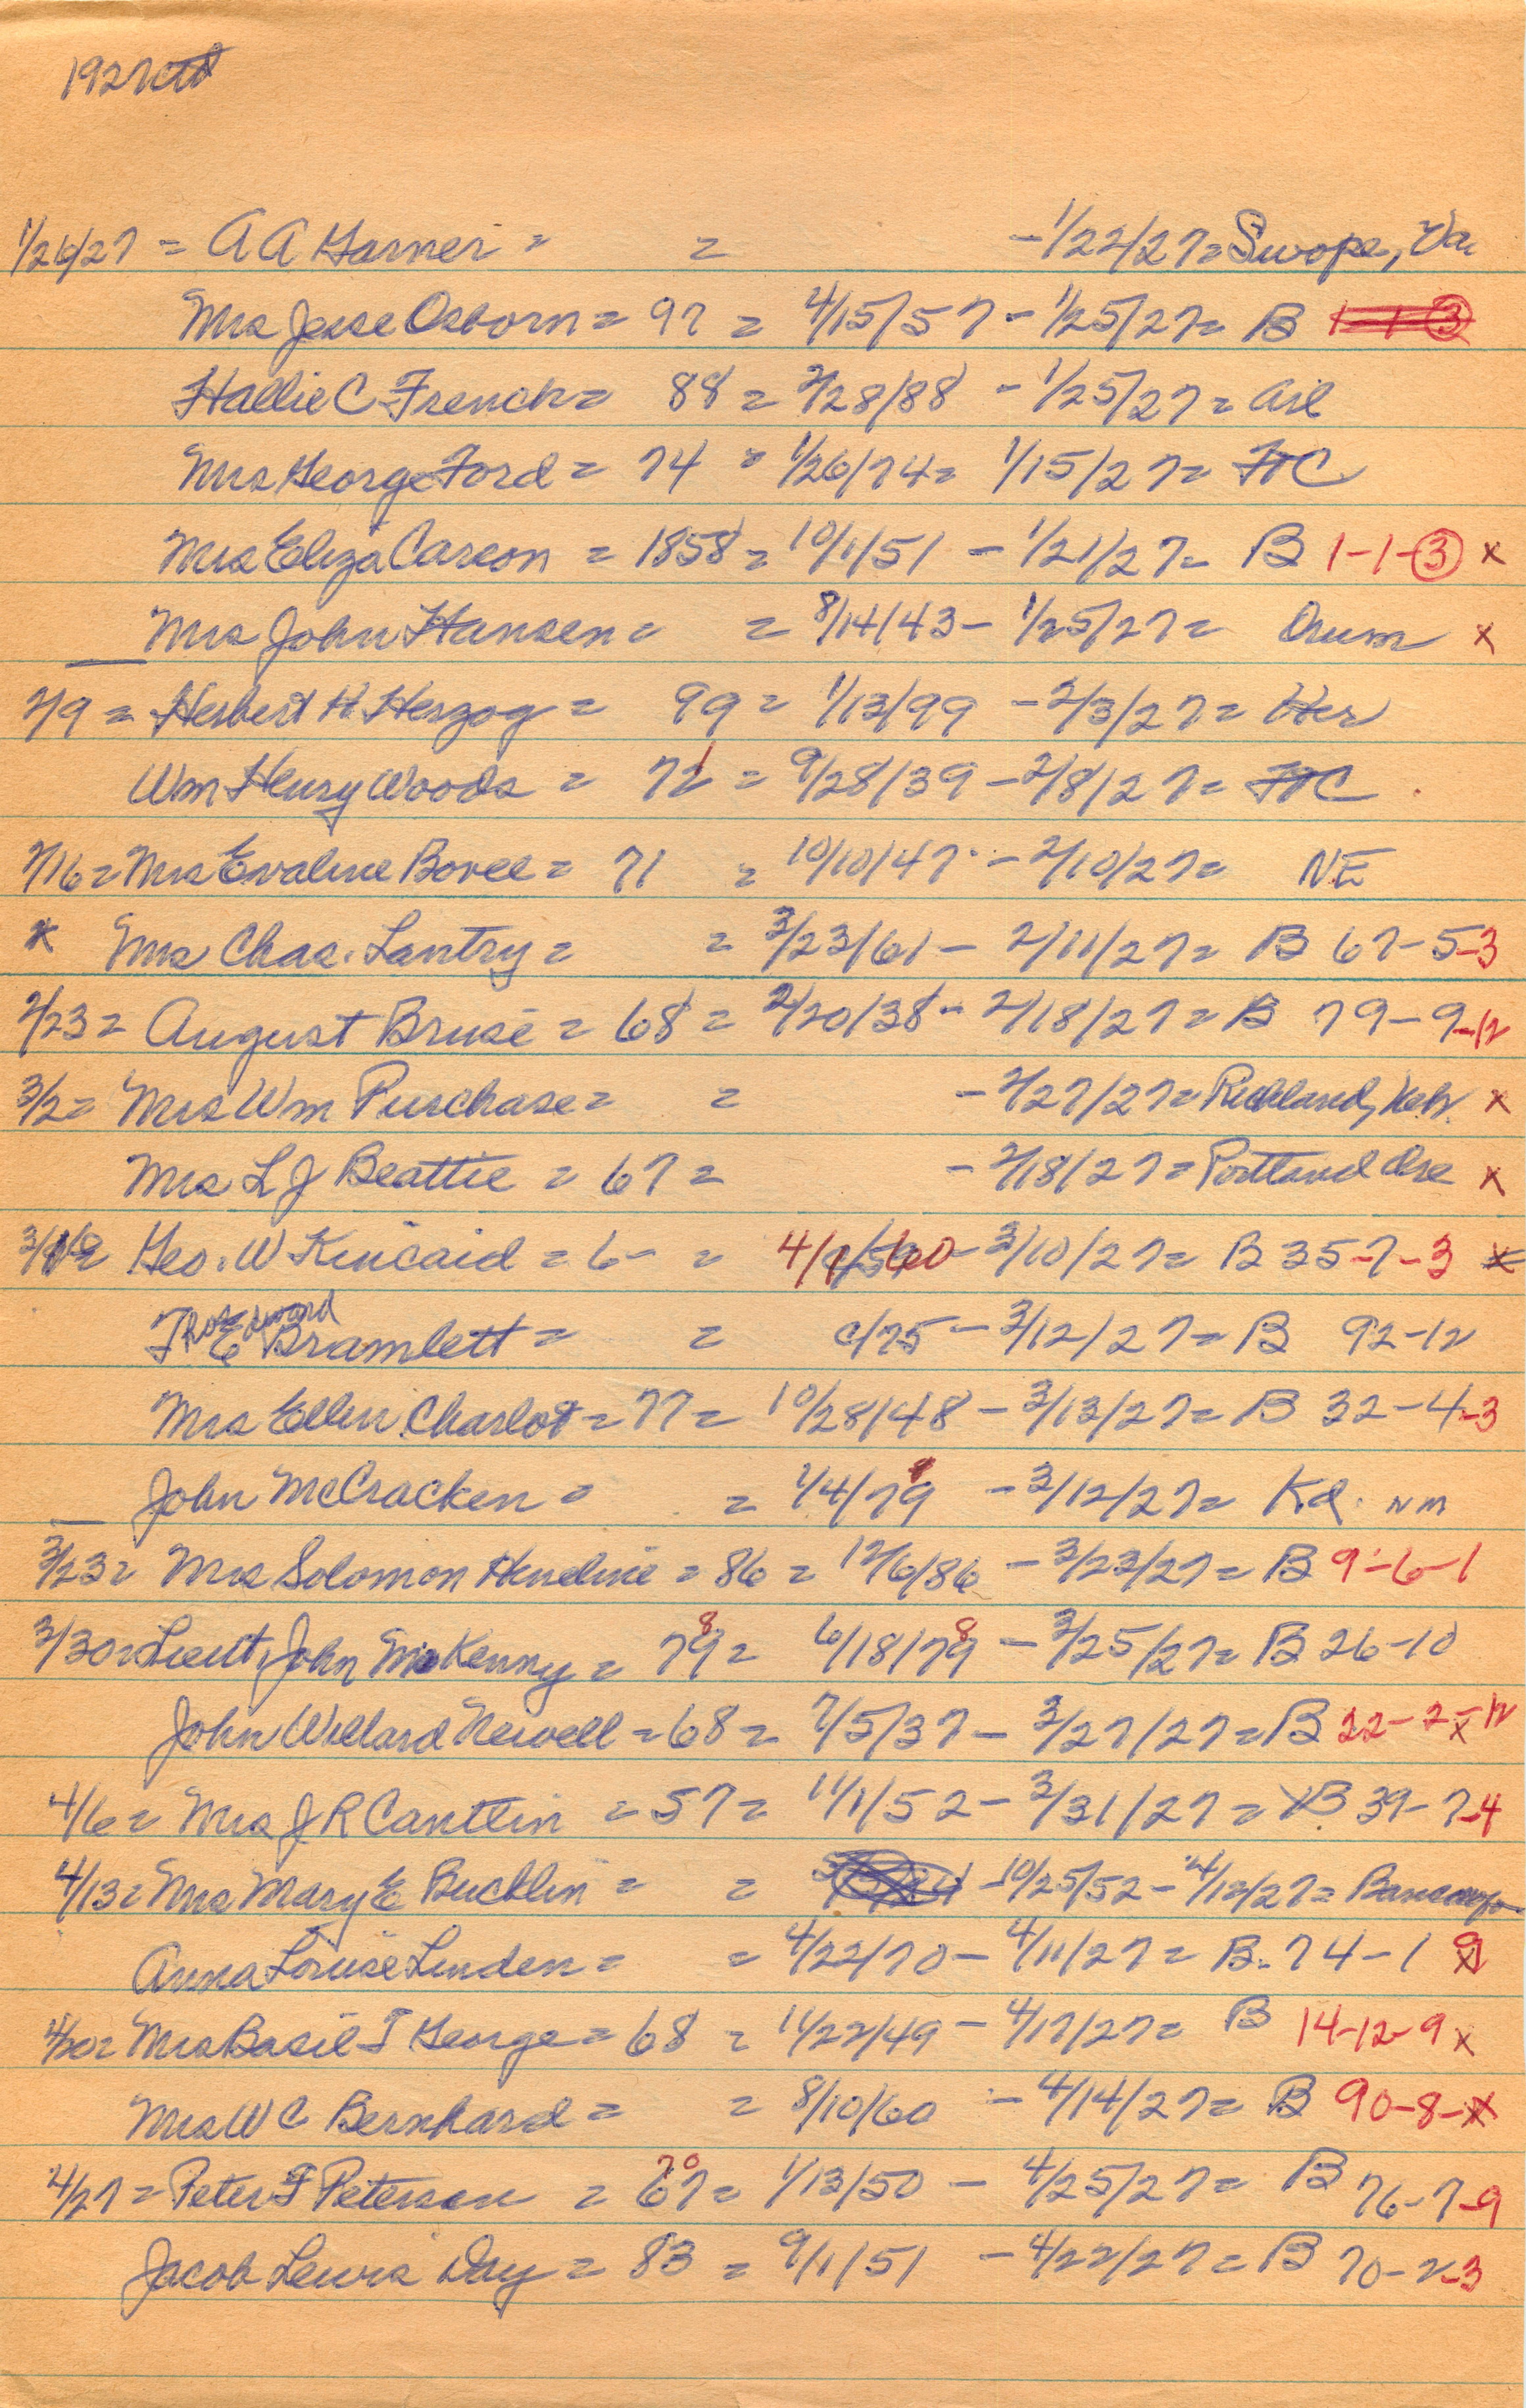 1927 ctd
1/26/27 = A A Garner = = - 1/22/27 = Swope, Va
Mrs Jesse Osborn = 97 = 4/15/57 - 1/25/27 = B 1-1-3
Hallie C French = 88 = 2/28/88 - 1/25/27 = Arl
Mrs George Ford = 74 = 1/26/74 = 1/15/27 = FtC
Mrs Eliza Carson = 1858 = 10/1/51 - 1/21/27 = B 1-1-3 x
Mrs John Hansen = = 8/14/43 - 1/25/27 = Orum x
2/9 = Herbert H. Herzog = 99 = 1/13/99 - 2/3/27 = Her
Wm Henry Woods = 71 = 9/28/39 - 2/8/27 = FtC
2/16 = Mrs Evaline Bovee = 71 = 10/10/47 - 2/10/27 = NE
x Mrs Chas. Lantry = = 3/23/61 - 2/11/27 = B 67-5-3
2/23 = August Bruse = 68 = 2/20/38 - 2/18/27 = B 79-9-12
3/2 = Mrs Wm Purchase = = - 2/27/27 = Richland, Neb. x
Mrs L J Beattie = 67 = - 2/18/27 = Portland Ore x
3/16 = Geo. W Kincaid = 6- = 4/1/60 - 3/10/27 = B 35-7-3 x
Thos Edward
E Bramlett = = c/75 - 3/12/27 = B 92-12
Mrs Ellen Charlot = 77 = 10/28/48 - 3/13/27 = B 32-4-3
John McCracken = = 1/4/79 - 3/12/27 = Kd. NM
3/23 = Mrs Solomon Heneline = 86 = 12/6/86 - 3/23/27 = B 9-6-1
3/30 = Lieut. John McKenny = 79 8 = 6/18/79 8 - 3/25/27 = B 26-10
John Willard Newell = 68 = 7/5/37 - 3/27/27 = B 22-2-12 x
4/6 = Mrs J R Cantlin = 57 = 11/1/52 - 3/31/27 = XB 39-7-4
4/13 = Mrs Mary E Bucklin = = - 10/25/52 - 4/12/27 = Bancroft
Anna Louise Linden = = 4/22/70 - 4/11/27 = B. 74-1 9 x
4/20 = Mrs Basil T George = 68 = 11/22/49 - 4/17/27 = B 14-12-9 x
Mrs W C Bernhard = = 8/10/60 - 4/14/27 = B 90-8-x
4/27 = Peter F Peterson = 67 70 = 1/13/50 - 4/25/27 = B 76-7-9
Jacob Lewis Day = 83 = 9/1/51 - 4/22/27 = B 70-2-3